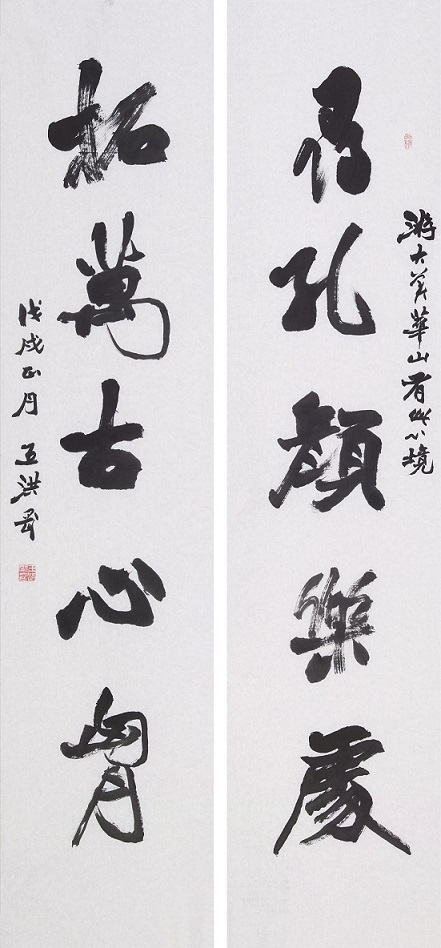 游大美華山有此心境
尋孔顏樂處
拓萬古心胷
戊戌正月 王洪武